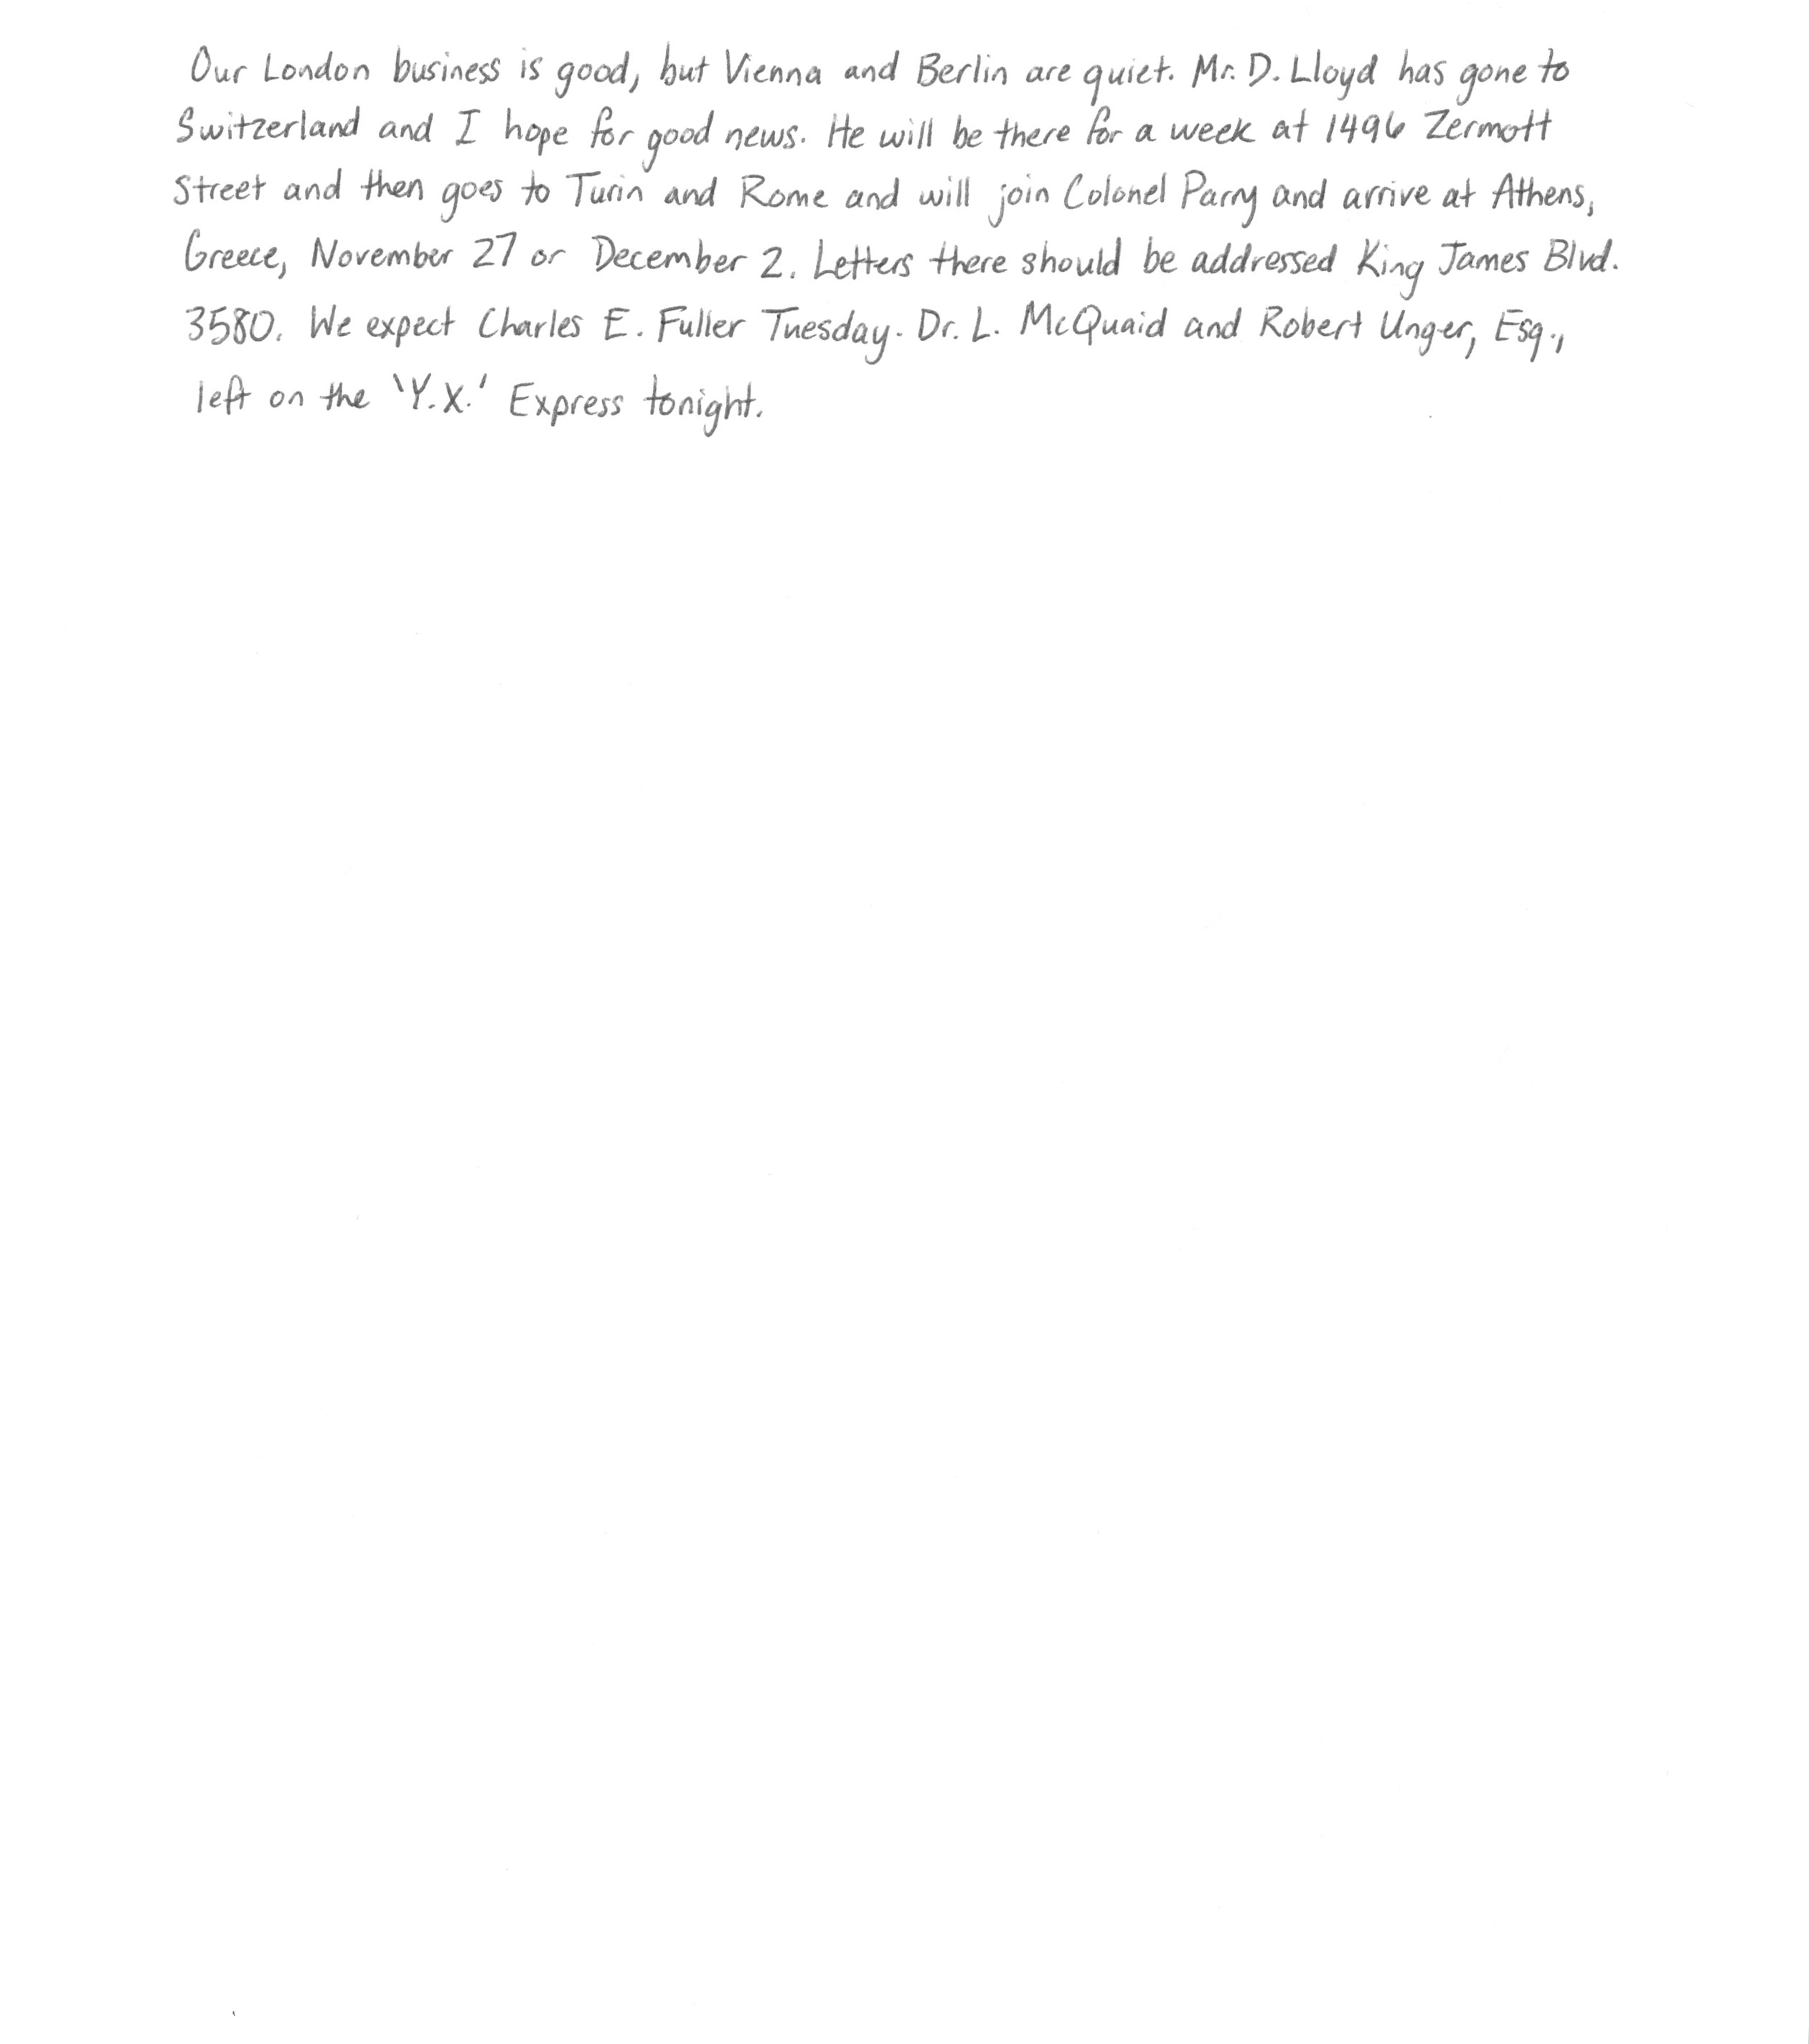 Our London business is good, but Vienna and Berlin are quiet. Mr. D. Lloyd has gone to
Switzerland and I hope for good news. He will be there for a week at 1496 Zermott
Street and then goes to Turin and Rome and will join Colonel Parry and arrive at Athens,
Greece, November 27 or December 2. Letters there should be addressed King James Blvd.
3580. We expect Charles E. Fuller Tuesday. Dr. L. McQuaid and Robert Unger, Esq.,
left on the 'Y.X.' Express tonight.